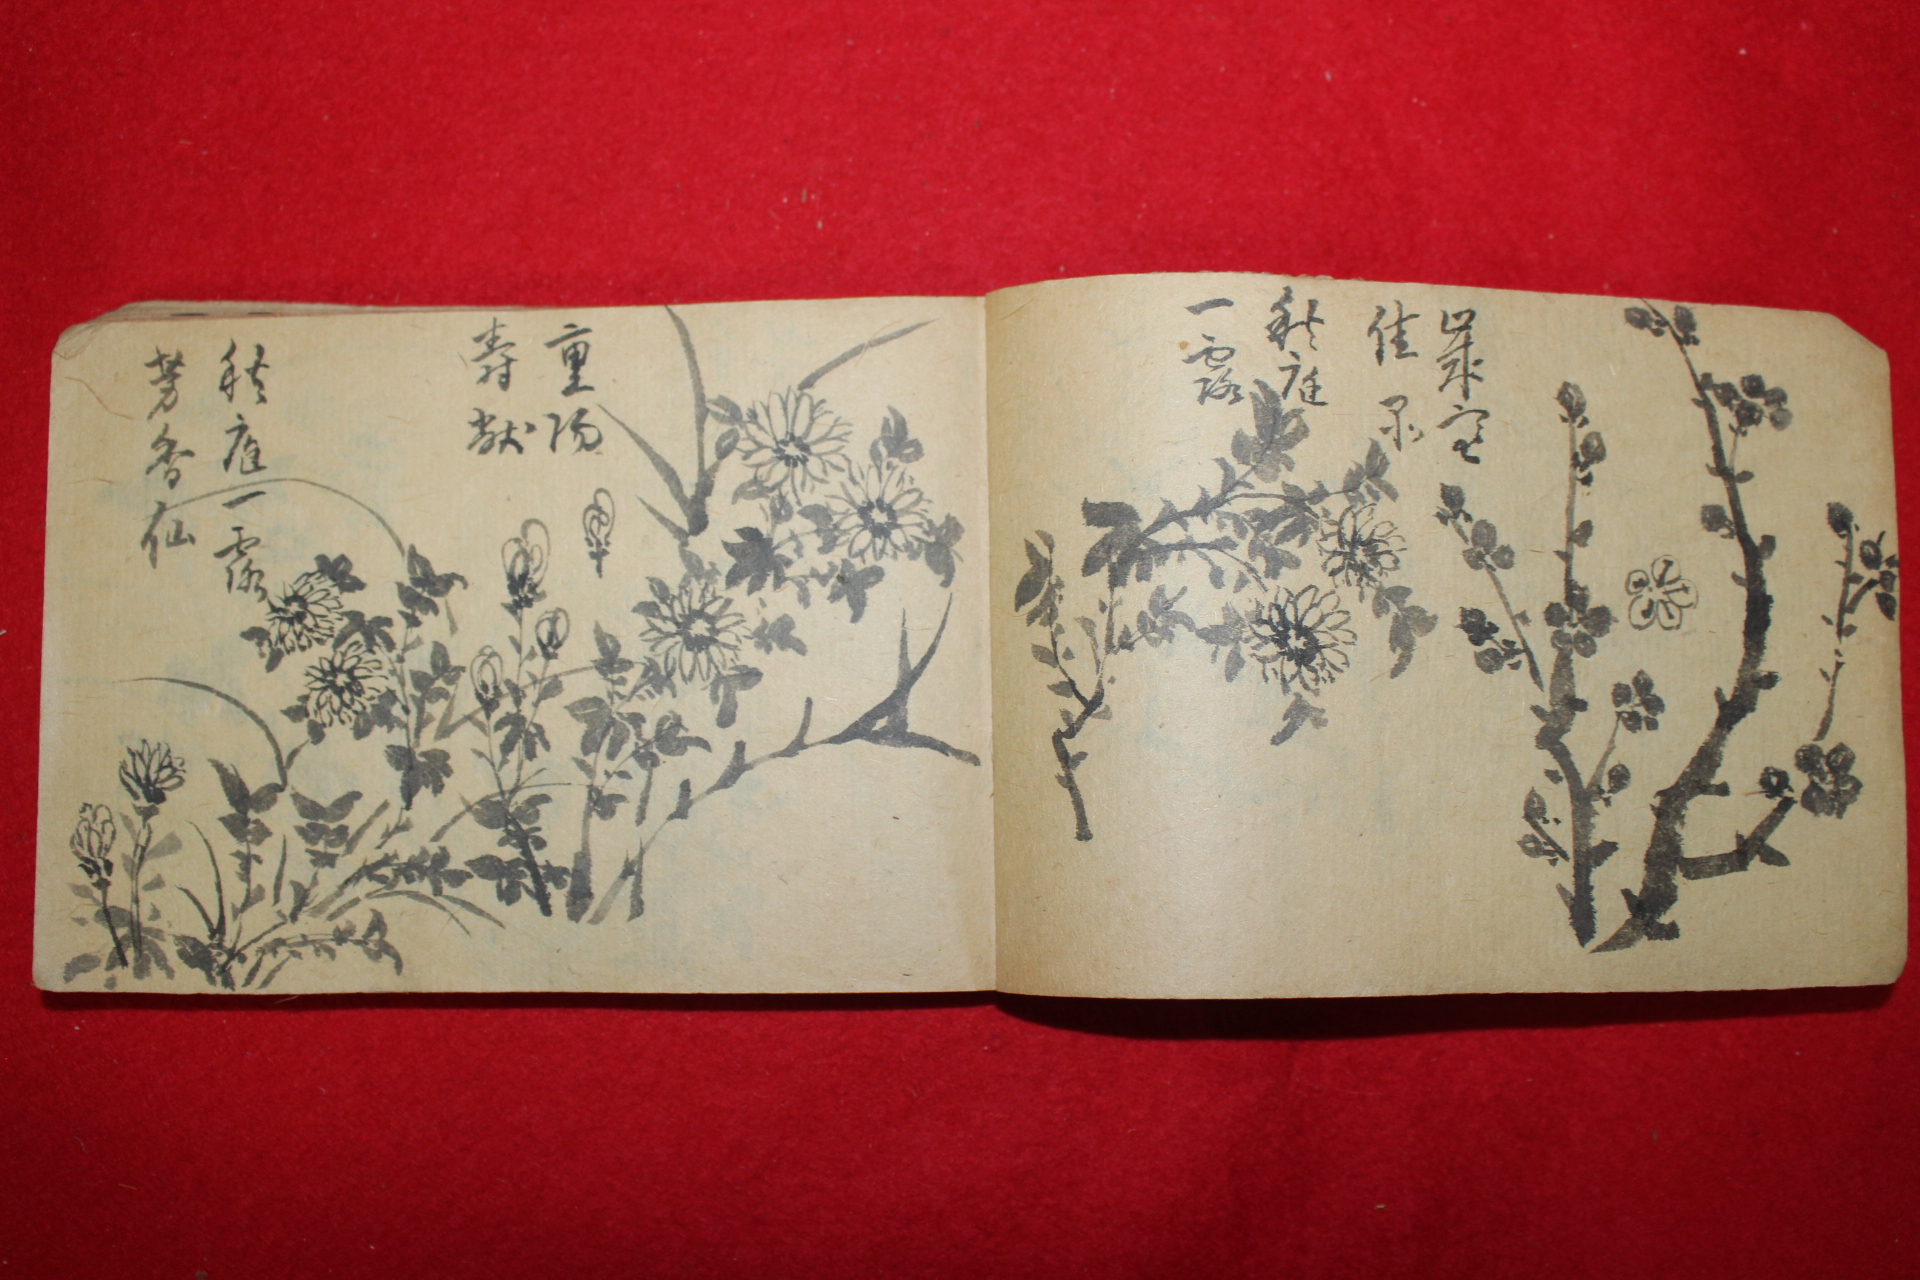 歲寒
佳果
秋庭
一露
重陽
壽獻
秋庭一露
芳香仙